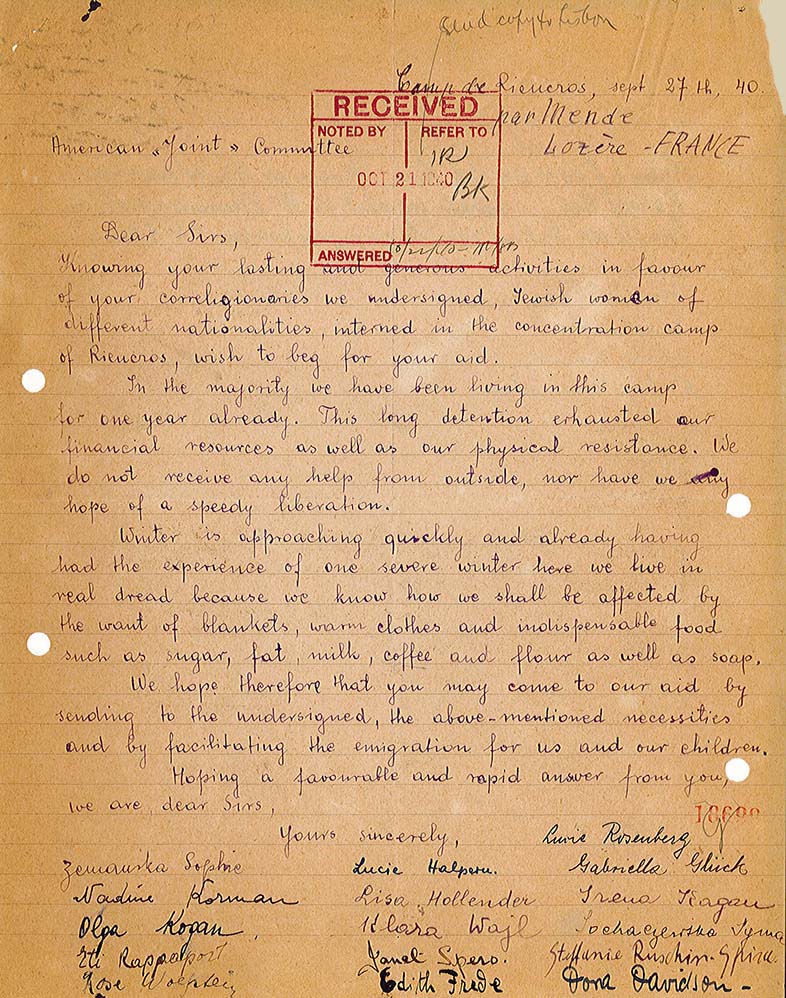 Send copy to Lisbon
Camp de Rieucros, sept 27th, 40.
par Mende
Lozère - FRANCE
American "Joint" Committee
RECEIVED
NOTED BY
REFER TO
OCT 21 1940
BK
ANSWERED
Dear Sirs,
Knowing your lasting and generous activities in favour
of your correligionaries we undersigned, Jewish women of
different nationalities, interned in the concentration camp
of Rieucros, wish to beg for your aid.
In the majority we have been living in this camp
for one year already. This long detention exhausted our
financial resources as well as our physical resistance. We
do not receive any help from outside, nor have we any
hope of a speedy liberation.
Winter is approaching quickly and already having
had the experience of one severe winter here we live in
real dread because we know how we shall be affected by
the want of blankets, warm clothes and indispensable food
such as sugar, fat, milk, coffee and flour as well as soap.
We hope therefore that you may come to our aid by
sending to the undersigned, the above-mentioned necessities
and by facilitating the emigration for us and our children.
Hoping a favourable and rapid answer from you,
we are, dear Sirs,
Yours sincerely,
Rosenberg
Zemanska Sophie
Lucie Halpern.
Gabriella Glück
Nadine Korman
Lisa Hollender
Irena Kagan
Olga Kogan
Klara Wajl
Sochaczewska
Eti Rappaport
Janet Spero.
Steffanie Ruschin-Spira.
Rose
Edith Frede
Dora Davidson -